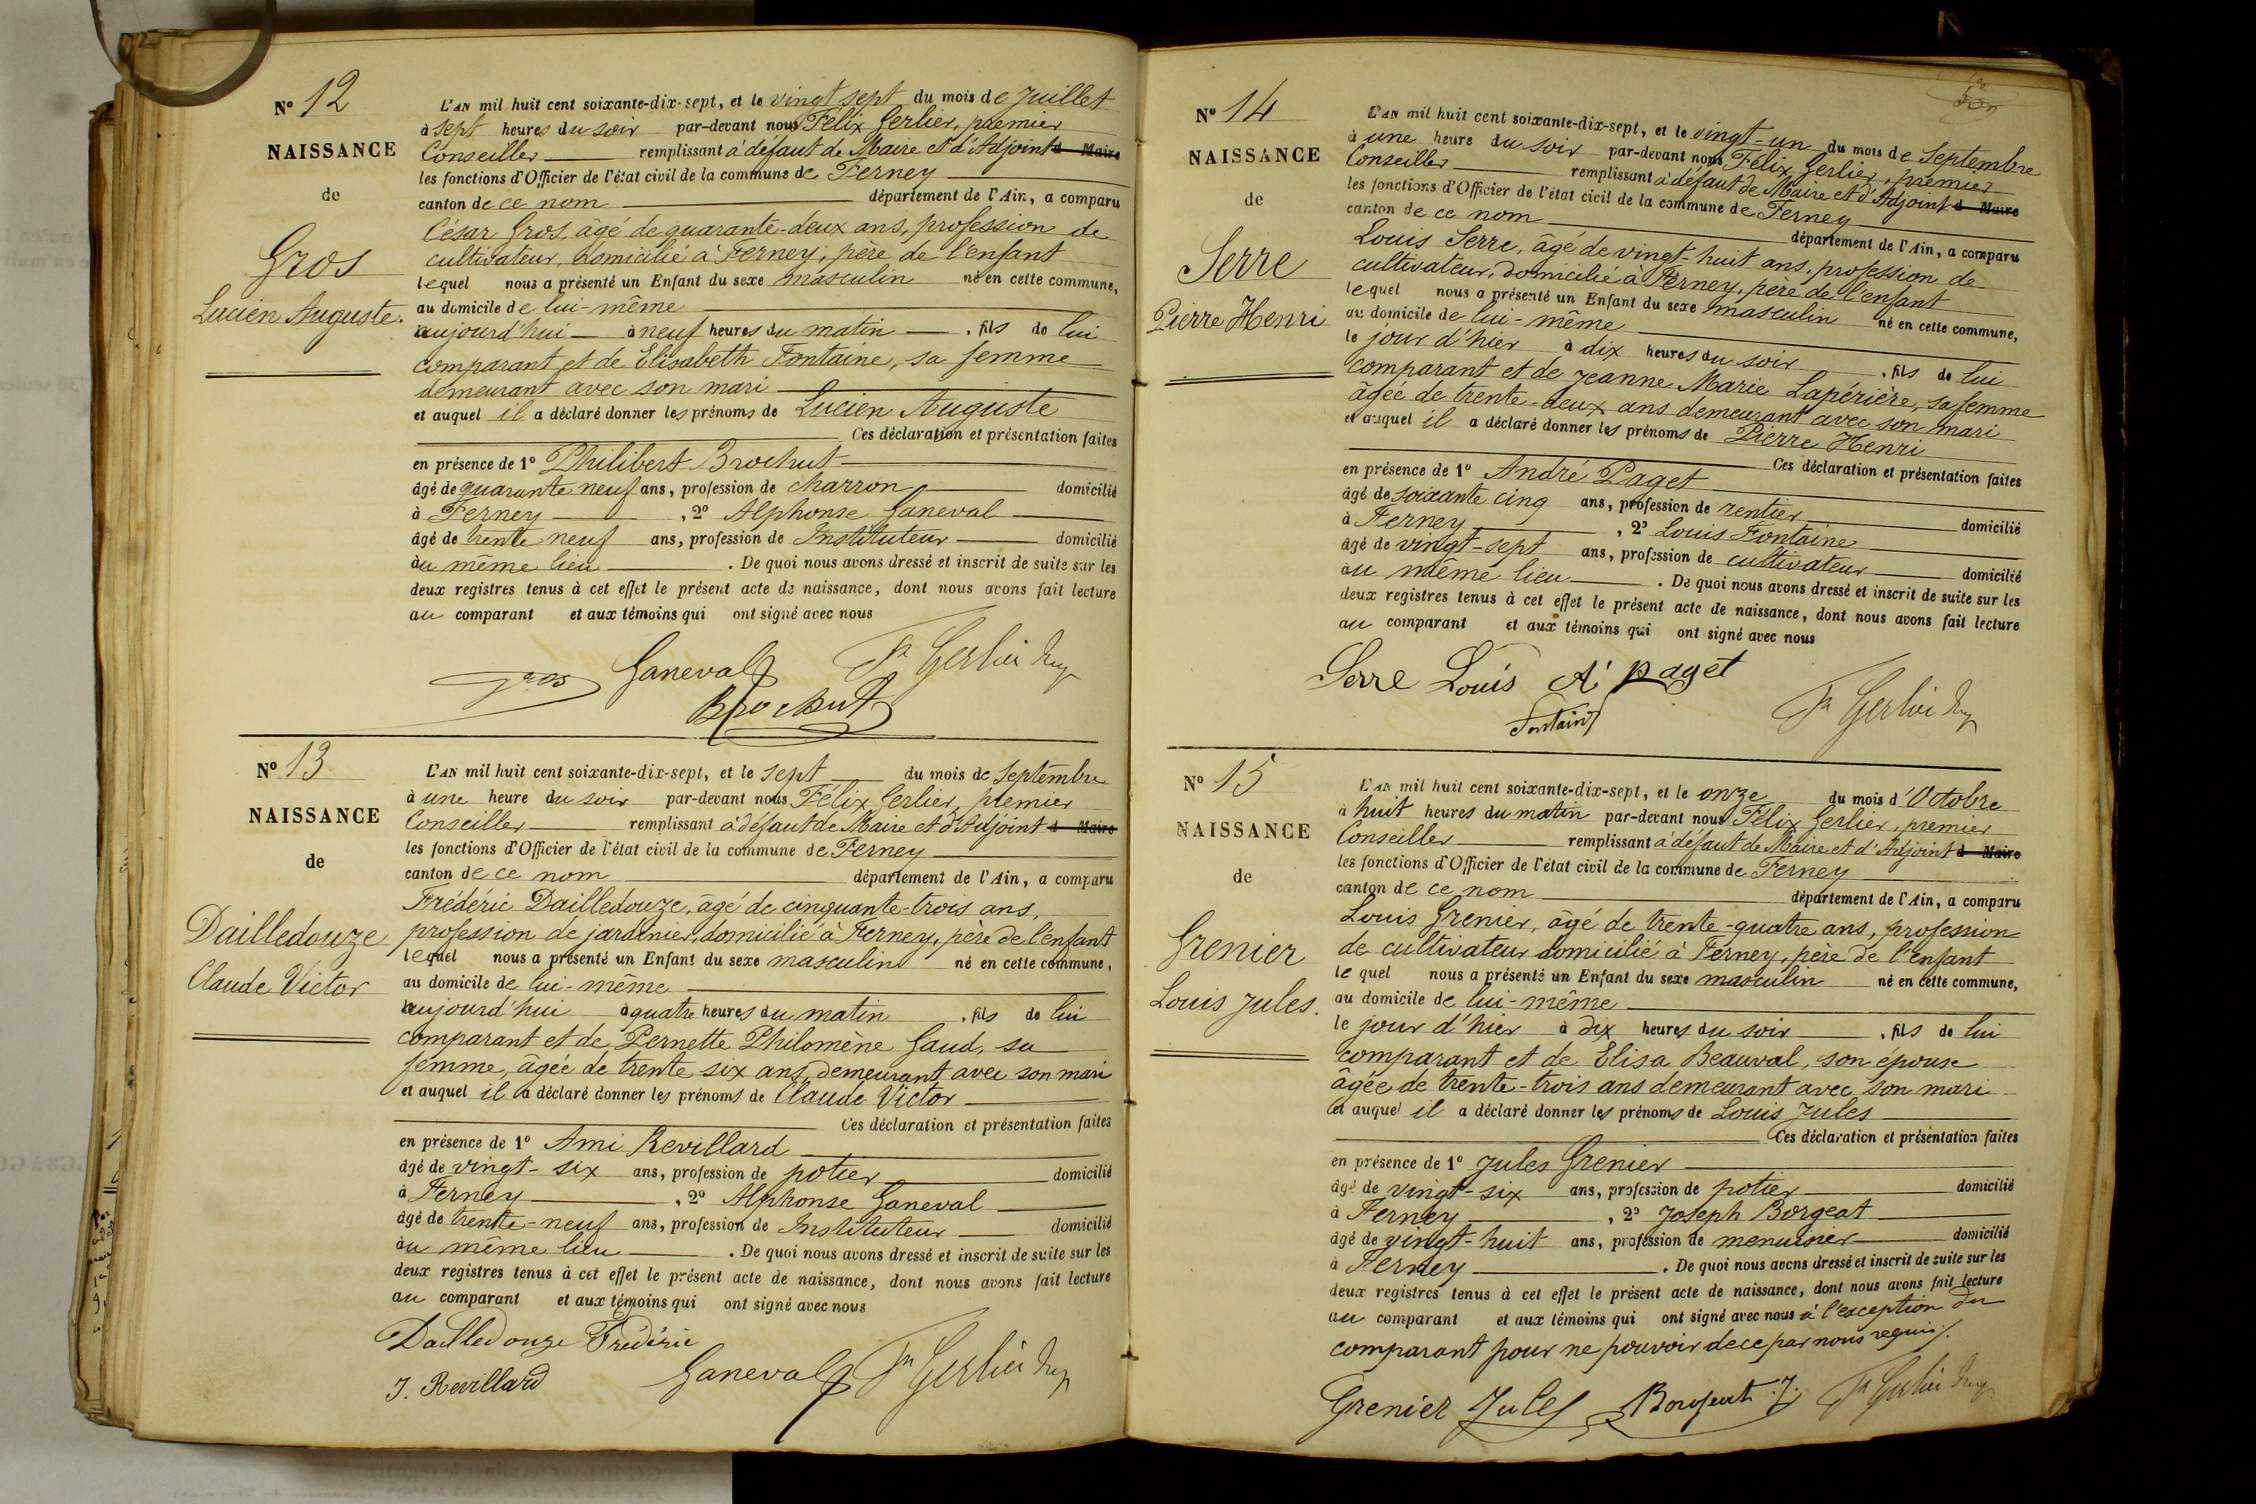 Nº 12
NAISSANCE
de
Gros
Lucien Auguste.
L'AN mil huit cent soixante-dix-sept, et le vingt sept du mois de Juillet
à sept heures du soir par-devant nous Félix Gerlier, premier
Conseiller remplissant à défaut de Maire et d'Adjoint d Maire
les fonctions d'Officier de l'état civil de la commune de Ferney
canton de ce nom département de l'Ain, a comparu
César Gros, âgé de quarante-deux ans, profession de
cultivateur, domicilié à Ferney, père de l'enfant
lequel nous a présenté un Enfant du sexe masculin né en cette commune,
au domicile de lui-même
aujourd'hui à neuf heures du matin , fils de lui
comparant et de Elisabeth Fontaine, sa femme
demeurant avec son mari
et auquel il a déclaré donner les prénoms de Lucien Auguste
Ces déclaration et présentation faites
en présence de 1º Philibert Brochut
âgé de quarante neuf ans, profession de charron domicilié
à Ferney , 2º Alphonse Ganeval
âgé de trente neuf ans, profession de Instituteur domicilié
au même lieu . De quoi nous avons dressé et inscrit de suite sur les
deux registres tenus à cet effet le présent acte de naissance, dont nous avons fait lecture
au comparant et aux témoins qui ont signé avec nous
Gros Ganeval Fx Gerlier
Brochut
Nº 13
NAISSANCE
de
Dailledouze
Claude Victor
L'AN mil huit cent soixante-dix-sept, et le sept du mois de Septembre
à une heure du soir par-devant nous Félix Gerlier, premier
Conseiller remplissant à défaut de Maire et d'Adjoint d Maire
les fonctions d'Officier de l'état civil de la commune de Ferney
canton de ce nom département de l'Ain, a comparu
Frédéric Dailledouze, âgé de cinquante-trois ans,
profession de jardinier, domicilié à Ferney, père de l'enfant
lequel nous a présenté un Enfant du sexe masculin né en cette commune,
au domicile de lui-même
aujourd'hui à quatre heures du matin , fils de lui
comparant et de Pernette Philomène Gaud, sa
femme, âgée de trente six ans, demeurant avec son mari
et auquel il a déclaré donner les prénoms de Claude Victor
Ces déclaration et présentation faites
en présence de 1º Ami Revillard
âgé de vingt-six ans, profession de potier domicilié
à Ferney , 2º Alphonse Ganeval
âgé de trente-neuf ans, profession de Instituteur domicilié
au même lieu . De quoi nous avons dressé et inscrit de suite sur les
deux registres tenus à cet effet le présent acte de naissance, dont nous avons fait lecture
au comparant et aux témoins qui ont signé avec nous
Dailledouze Frédéric
J. Revillard Ganeval Fx Gerlier
Nº 14
NAISSANCE
de
Serre
Pierre Henri
L'AN mil huit cent soixante-dix-sept, et le vingt-un du mois de Septembre
à une heure du soir par-devant nous Félix Gerlier, premier
Conseiller remplissant à défaut de Maire et d'Adjoint d Maire
les fonctions d'Officier de l'état civil de la commune de Ferney
canton de ce nom département de l'Ain, a comparu
Louis Serre, âgé de vingt-huit ans, profession de
cultivateur, domicilié à Ferney, père de l'enfant
lequel nous a présenté un Enfant du sexe masculin né en cette commune,
au domicile de lui-même
le jour d'hier à dix heures du soir , fils de lui
comparant et de Jeanne Marie Lapérière, sa femme
âgée de trente-deux ans demeurant avec son mari
et auquel il a déclaré donner les prénoms de Pierre Henri
Ces déclaration et présentation faites
en présence de 1º André Paget
âgé de soixante cinq ans, profession de rentier domicilié
à Ferney , 2º Louis Fontaine
âgé de vingt-sept ans, profession de cultivateur domicilié
au même lieu . De quoi nous avons dressé et inscrit de suite sur les
deux registres tenus à cet effet le présent acte de naissance, dont nous avons fait lecture
au comparant et aux témoins qui ont signé avec nous
Serre Louis A. paget
Fontaine Fx Gerlier
Nº 15
NAISSANCE
de
Grenier
Louis Jules.
L'AN mil huit cent soixante-dix-sept, et le onze du mois d'Octobre
à huit heures du matin par-devant nous Félix Gerlier, premier
Conseiller remplissant à défaut de Maire et d'Adjoint d Maire
les fonctions d'Officier de l'état civil de la commune de Ferney
canton de ce nom département de l'Ain, a comparu
Louis Grenier, âgé de trente-quatre ans, profession
de cultivateur domicilié à Ferney, père de l'enfant
le quel nous a présenté un Enfant du sexe masculin né en cette commune,
au domicile de lui-même
le jour d'hier à dix heures du soir , fils de lui
comparant et de Elisa Beauval, son épouse
âgée de trente-trois ans demeurant avec son mari
et auquel il a déclaré donner les prénoms de Louis Jules
Ces déclaration et présentation faites
en présence de 1º Jules Grenier
âgé de vingt-six ans, profession de potier domicilié
à Ferney , 2º Joseph Borgeat
âgé de vingt-huit ans, profession de menuisier domicilié
à Ferney . De quoi nous avons dressé et inscrit de suite sur les
deux registres tenus à cet effet le présent acte de naissance, dont nous avons fait lecture
au comparant et aux témoins qui ont signé avec nous à l'exception du
comparant pour ne pouvoir de ce par nous requis.
Grenier Jules Borgeat J. Fx Gerlier